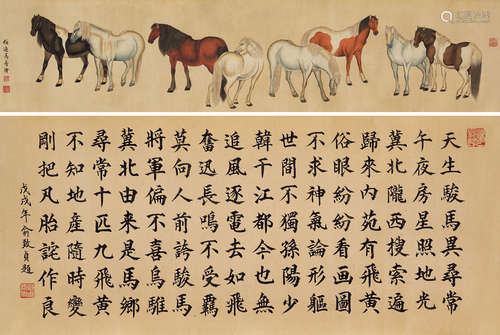 天生駿馬異尋常
午夜房星照地光
冀北隴西搜索遍
歸來內苑有飛黃
俗眼紛紛看畫圖
不求神氣論形軀
世間不獨孫陽少
韓干江都今也無
追風逐電去如飛
奮迅長鳴不受羈
莫向人前誇駿馬
將軍偏不喜烏騅
冀北由來是馬鄉
尋常十匹九飛黃
不知地產隨時變
剛把凡胎詫作良
戊戌年俞致貞題